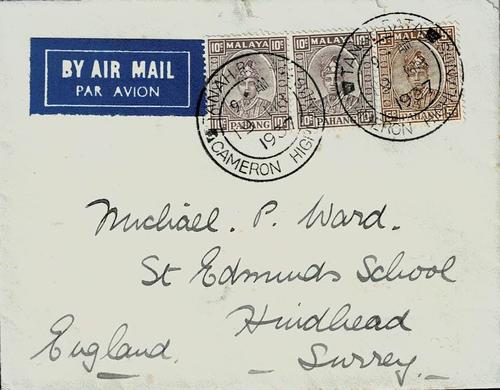 BY AIR MAIL
PAR AVION
10c MALAYA 10c
PAHANG
10c MALAYA 10c
PAHANG
TANAH RATA
1937
CAMERON HIGH
TANAH RATA
1937
CAMERON HIGH
Michael. P. Ward.
St Edmunds School
Hindhead
England. Surrey.